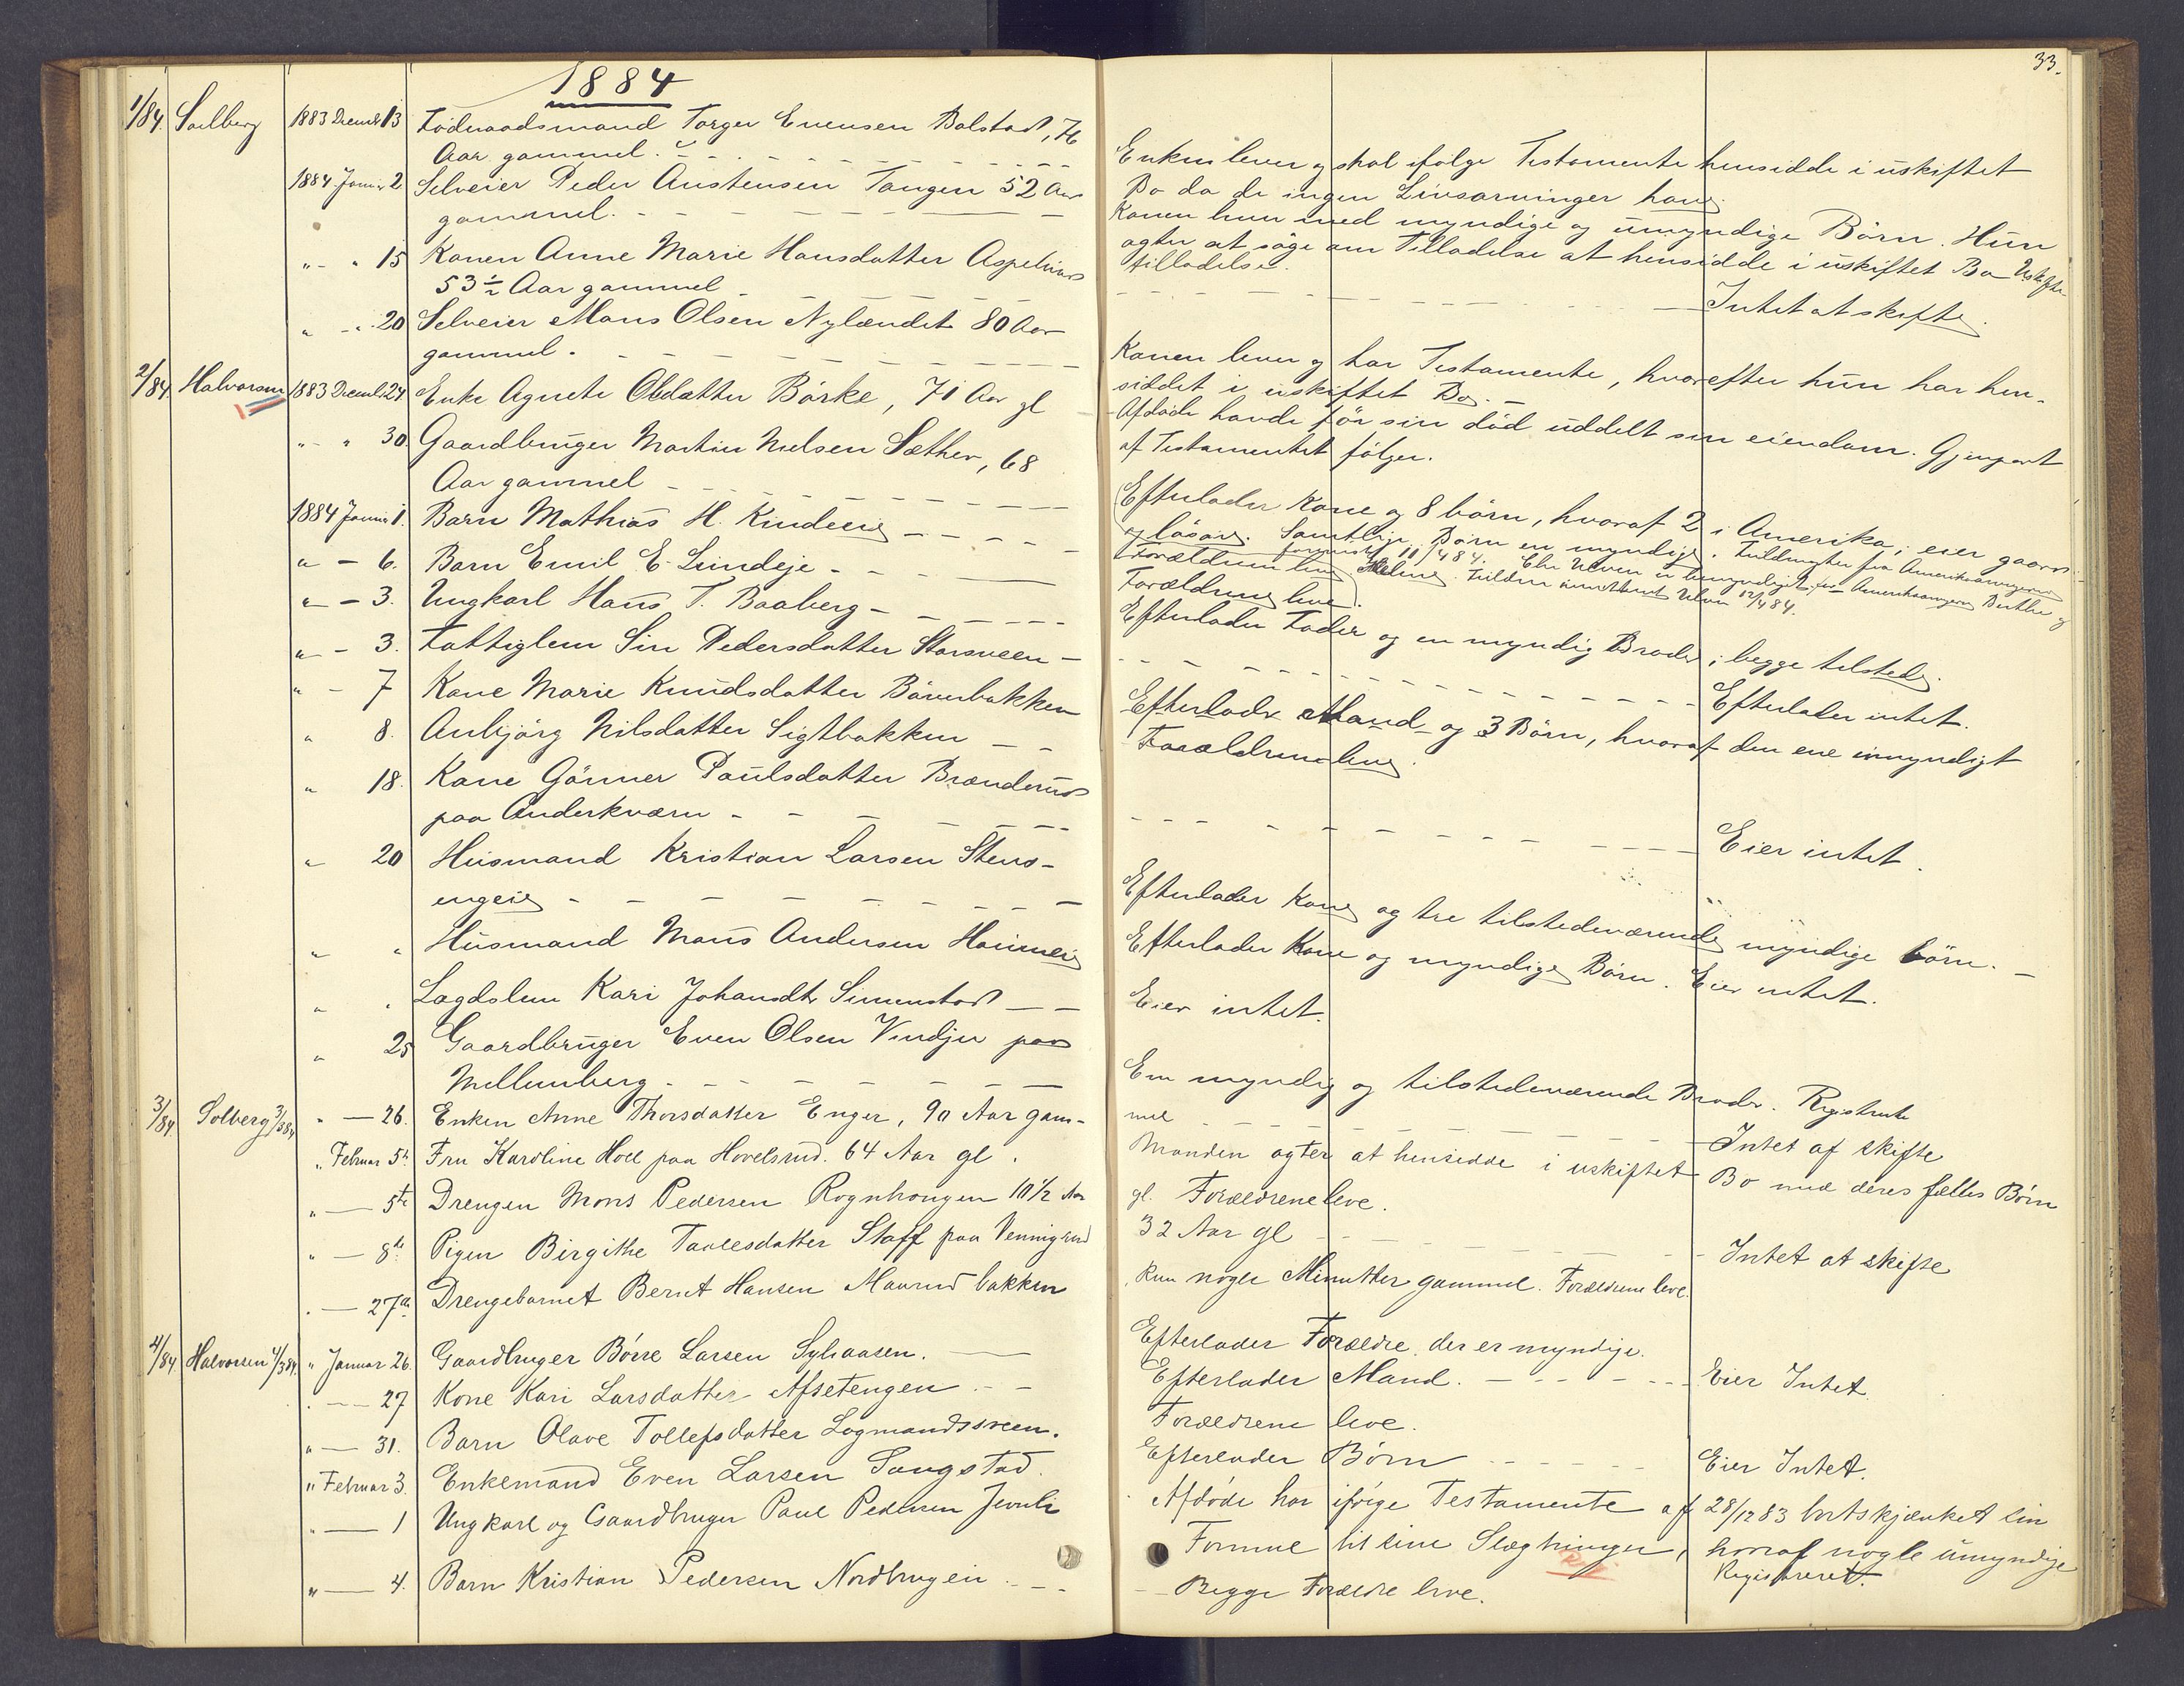 33.
1884
1/84. Solberg 1883 Decembr 13 Föderaadsmand Torger Evensen Bolstad, 76
Aar gammel.
1884 Januar 2 Selveier Peder Austensen Tangen 52 Aar
gammel.
" - " 15 Konen Anne Marie Hansdatter
53 ½ Aar gammel
" - " 20 Selveier Mons Olsen Nylændet 80 Aar
gammel.
2/84. Halvorsen 1883 Decembr 24 Enke Agnete Olsdatter Börke, 71 Aar gl
" - " 30 Gaardbruger Martin Nielsen Sæther, 68
Aar gammel
1884 Januar 1. Barn Mathias H. Kindeeie
" - 6. Barn Emil E. Lindeje
" - 3. Ungkarl Hans T. Baaberg
" - 3. Fattiglem Siri Pedersdatter Storsveen
" - 7 Kone Marie Knudsdatter Böverbakken
" 8. Anbjörg Nilsdatter Sigtbakken
" 18. Kone Gönner Paulsdatter Brænderud
paa Anderkværn
" 20 Husmand Kristian Larsen Stens-
engeie
" " Husmand Mons Andersen
" " Lægdslem Kari Johansdtr Simenstad
" 25 Gaardbruger Even Olsen Vindju paa
Mellumberg
3/84. Solberg 3/384 " — 26. Enken Anne Thorsdatter Enger, 90 Aar gam-
" Februar 5te Fru Karoline Hoel paa Hovelsrud. 64 Aar gl.
" — 5te Drengen Mons Pedersen Rognhougen 10½ Aar
" — 8de Pigen Birgithe Paulesdatter Staff paa Venningrud
" — 27de Drengebarnet Bernt Hansen Maurudbakken
4/84. Halvorsen 4/384. " Januar 26. Gaardbruger Börre Larsen Syljuaasen.
" — 27 Kone Kari Larsdatter Afsetengen
" — 31. Barn Olave Tollefsdatter Logmandssveen.
" Februar 3. Enkemand Even Larsen Saugstad.
" — 1 Ungkarl og Gaardbruger Paul Pedersen Jevnli
" — 4. Barn Kristian Pedersen Nordbrugen
Enken lever og skal ifølge Testamente hensidde i uskiftet
Bo da de ingen Livsarvinger have.
Konen lever med myndige og umyndige Börn. Hun
agter at söge om Tilladelse at hensidde i uskiftet Bo Uskifte-
tilladelse.
Intet at skifte.
Konen lever og har Testamente, hvorefter hun har hen-
siddet i uskiftet Bo.
Afdöde havde för sin död uddelt sin eiendom. Gjenpart
af Testamentet fölger.
Efterlader Kone og 8 börn, hvoraf 2 i Amerika; eier gaard
og lösöre. Samtlige Börn er myndige. Fuldmagter fra Amerikaarvingerne
11/484. Ulven er bemyndiget for Amerikaarvingerne Berthe og
Forældrene leve. Helene. Ulven 12/484.
Forældrene leve.
Efterlader Fader og en myndig Broder; begge tilstede.
Efterlader intet.
Efterlader Mand og 3 Börn, hvoraf den ene umyndigt
Forældrene leve.
Eier intet.
Efterlader Kone og tre tilstedeværende myndige börn.
Efterlader Kone og myndige Börn. Eier intet.
Eier intet.
En myndig og tilstedeværende Broder. Registreret
mel Intet at skifte
Manden agter at hensidde i uskiftet Bo med deres fælles Börn
gl. Forældrene leve.
32 Aar gl Intet at skifte
Kun nogle Minutter gammel. Forældrene leve.
Efterlader Forældre der er myndige.
Efterlader Mand. Eier Intet
Forældrene leve.
Efterlader Börn Eier Intet.
Afdöde har ifölge Testamente af 28/12 83 bortskjænket sin
Formue til sine Slægtninger, hvoraf nogle umyndige
Registreret.
Begge Forældre leve.